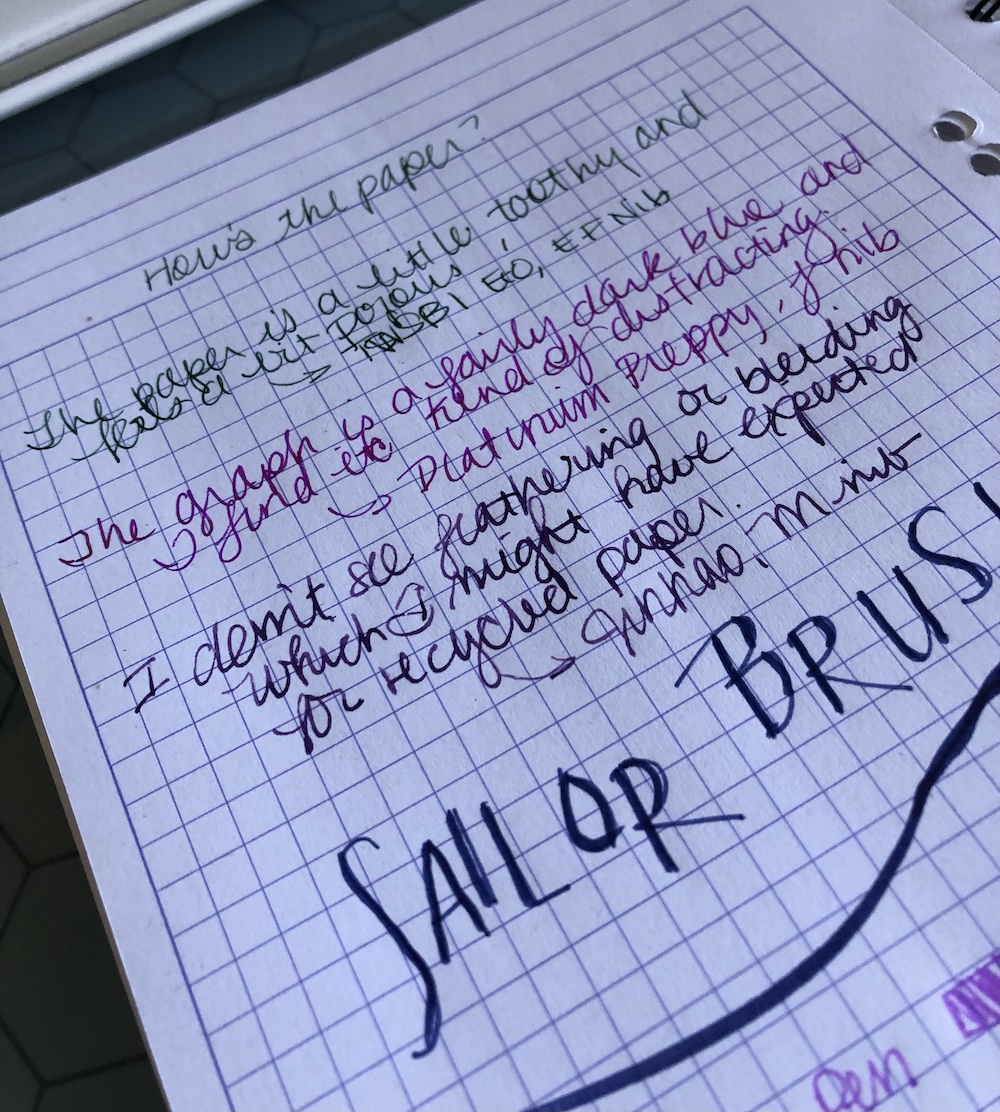 How's the paper?
The paper is a little toothy and
feels a bit porous
→ TWSBI ECO, EF Nib
The graph is a fairly dark blue and
I find it kind of distracting.
→ Platinum Preppy, f nib
I don't see feathering or bleeding
which I might have expected
for recycled paper.
→ Jinhao, M nib
SAILOR BRUS
pen